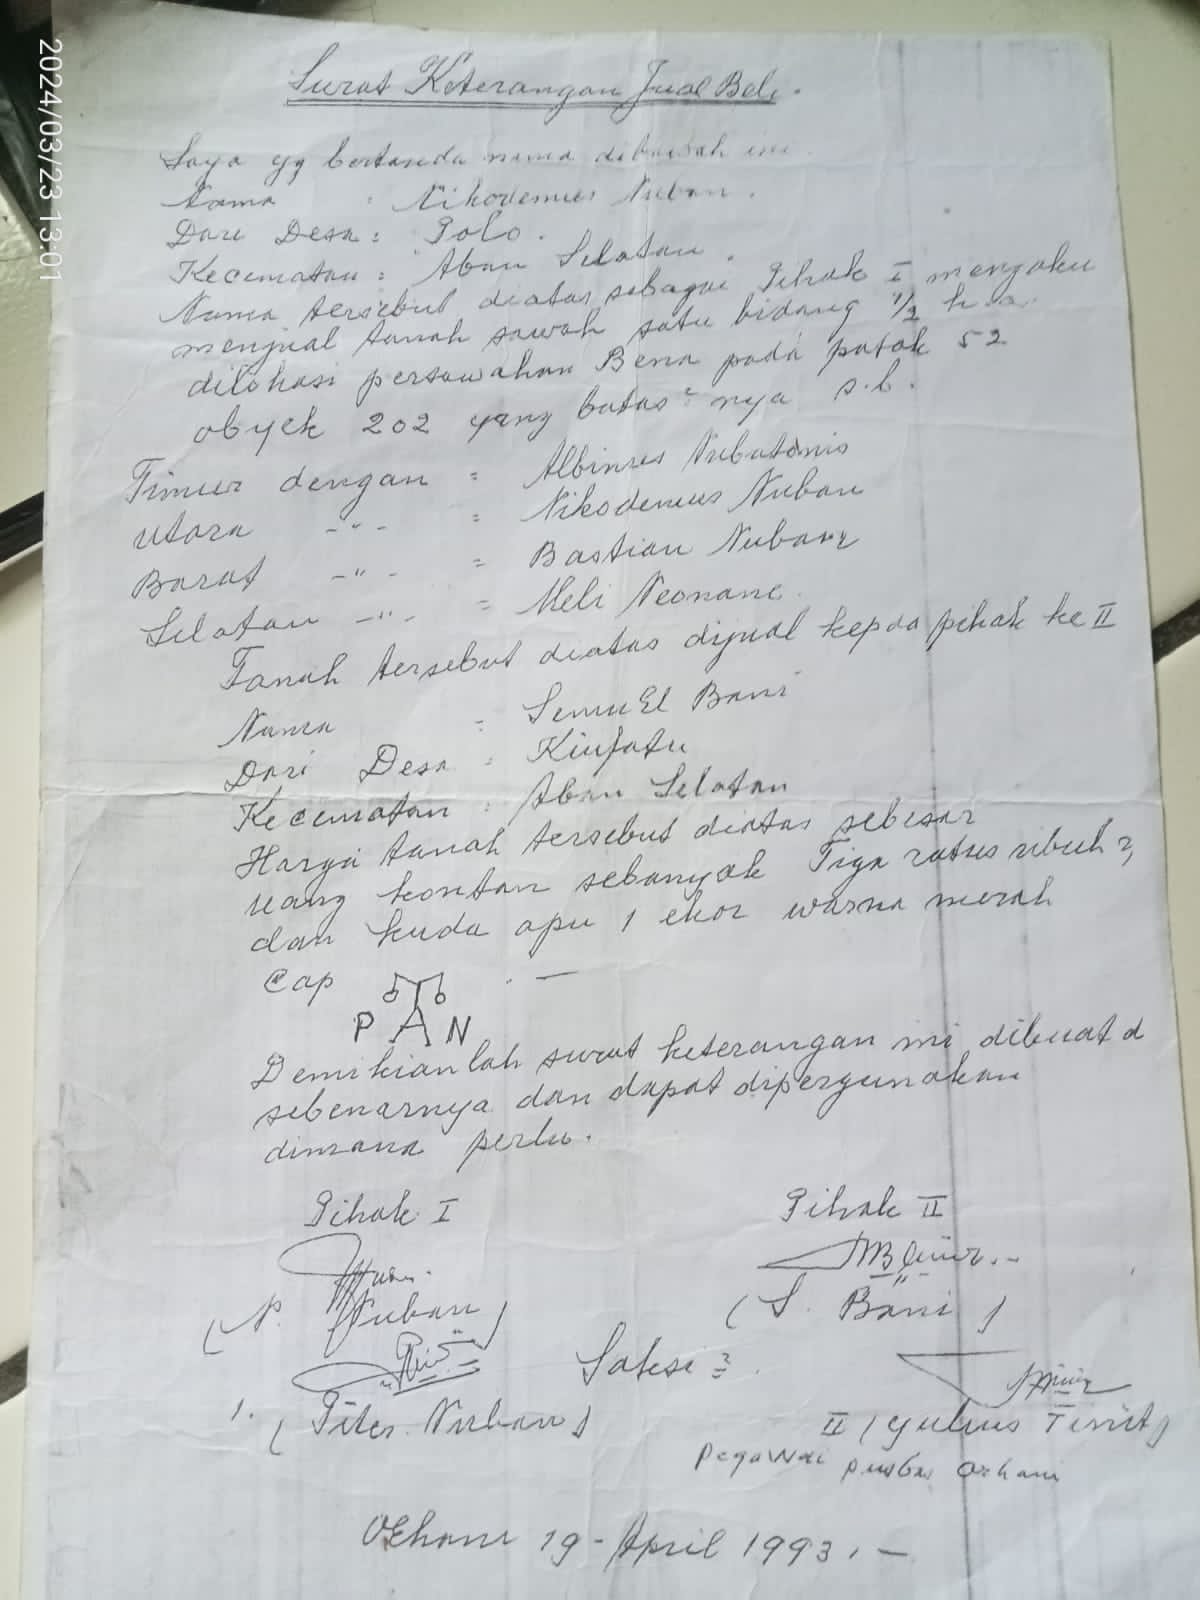 2024/03/23 13:01
Surat Keterangan Jual Beli.
Saya yg bertanda nama dibawah ini
Nama : Nikodemus Nuban.
Dari Desa : Polo.
Kecematan : Aban Selatan.
Nama tersebut diatas sebagai Pihak I mengaku
menjual tanah sawah satu bidang 1/2 h a.
dilokasi persawahan Bena pada patok 52
obyek 202 yang batas² nya s.b.
Timur dengan = Albinus Nubatonis
Utara -"- = Nikodemus Nuban
Barat -"- = Bastian Nuban
Selatan -"- = Meli Neonane
Tanah tersebut diatas dijual kepda pihak ke II
Nama : SemuEl Bani
Dari Desa : Kiufatu
Kecematan : Aban Selatan
Harga tanah tersebut diatas sebesar
uang kontan sebanyak Tiga ratus ribuh
dan kuda apu 1 ekor warna merah
Cap
P A N
Demikianlah surat keterangan ini dibuat d
sebenarnya dan dapat dipergunakan
dimana perlu.
Pihak I Pihak II
(N. Nuban) (S. Bani)
Saksi²
1. (Pites Nuban) II (Yulius Tinit)
Pegawai pusbas Oehani
Oehani 19 - April 1993. -